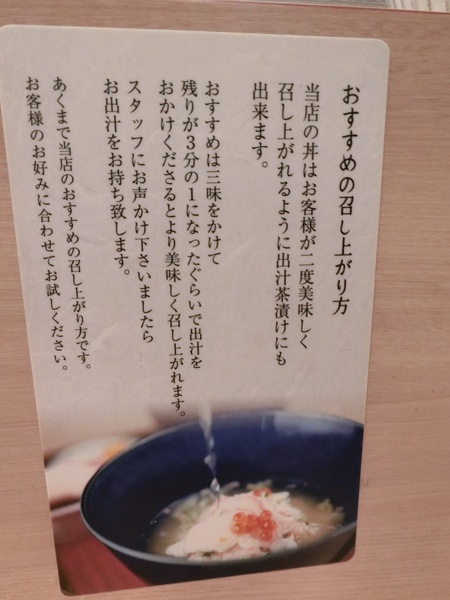 おすすめの召し上がり方
当店の丼はお客様が二度美味しく
召し上がれるように出汁茶漬けにも
出来ます。
おすすめは三味をかけて
残りが3分の1になったぐらいで出汁を
おかけくださるとより美味しく召し上がれます。
スタッフにお声かけ下さいましたら
お出汁をお持ち致します。
あくまで当店のおすすめの召し上がり方です。
お客様のお好みに合わせてお試しください。